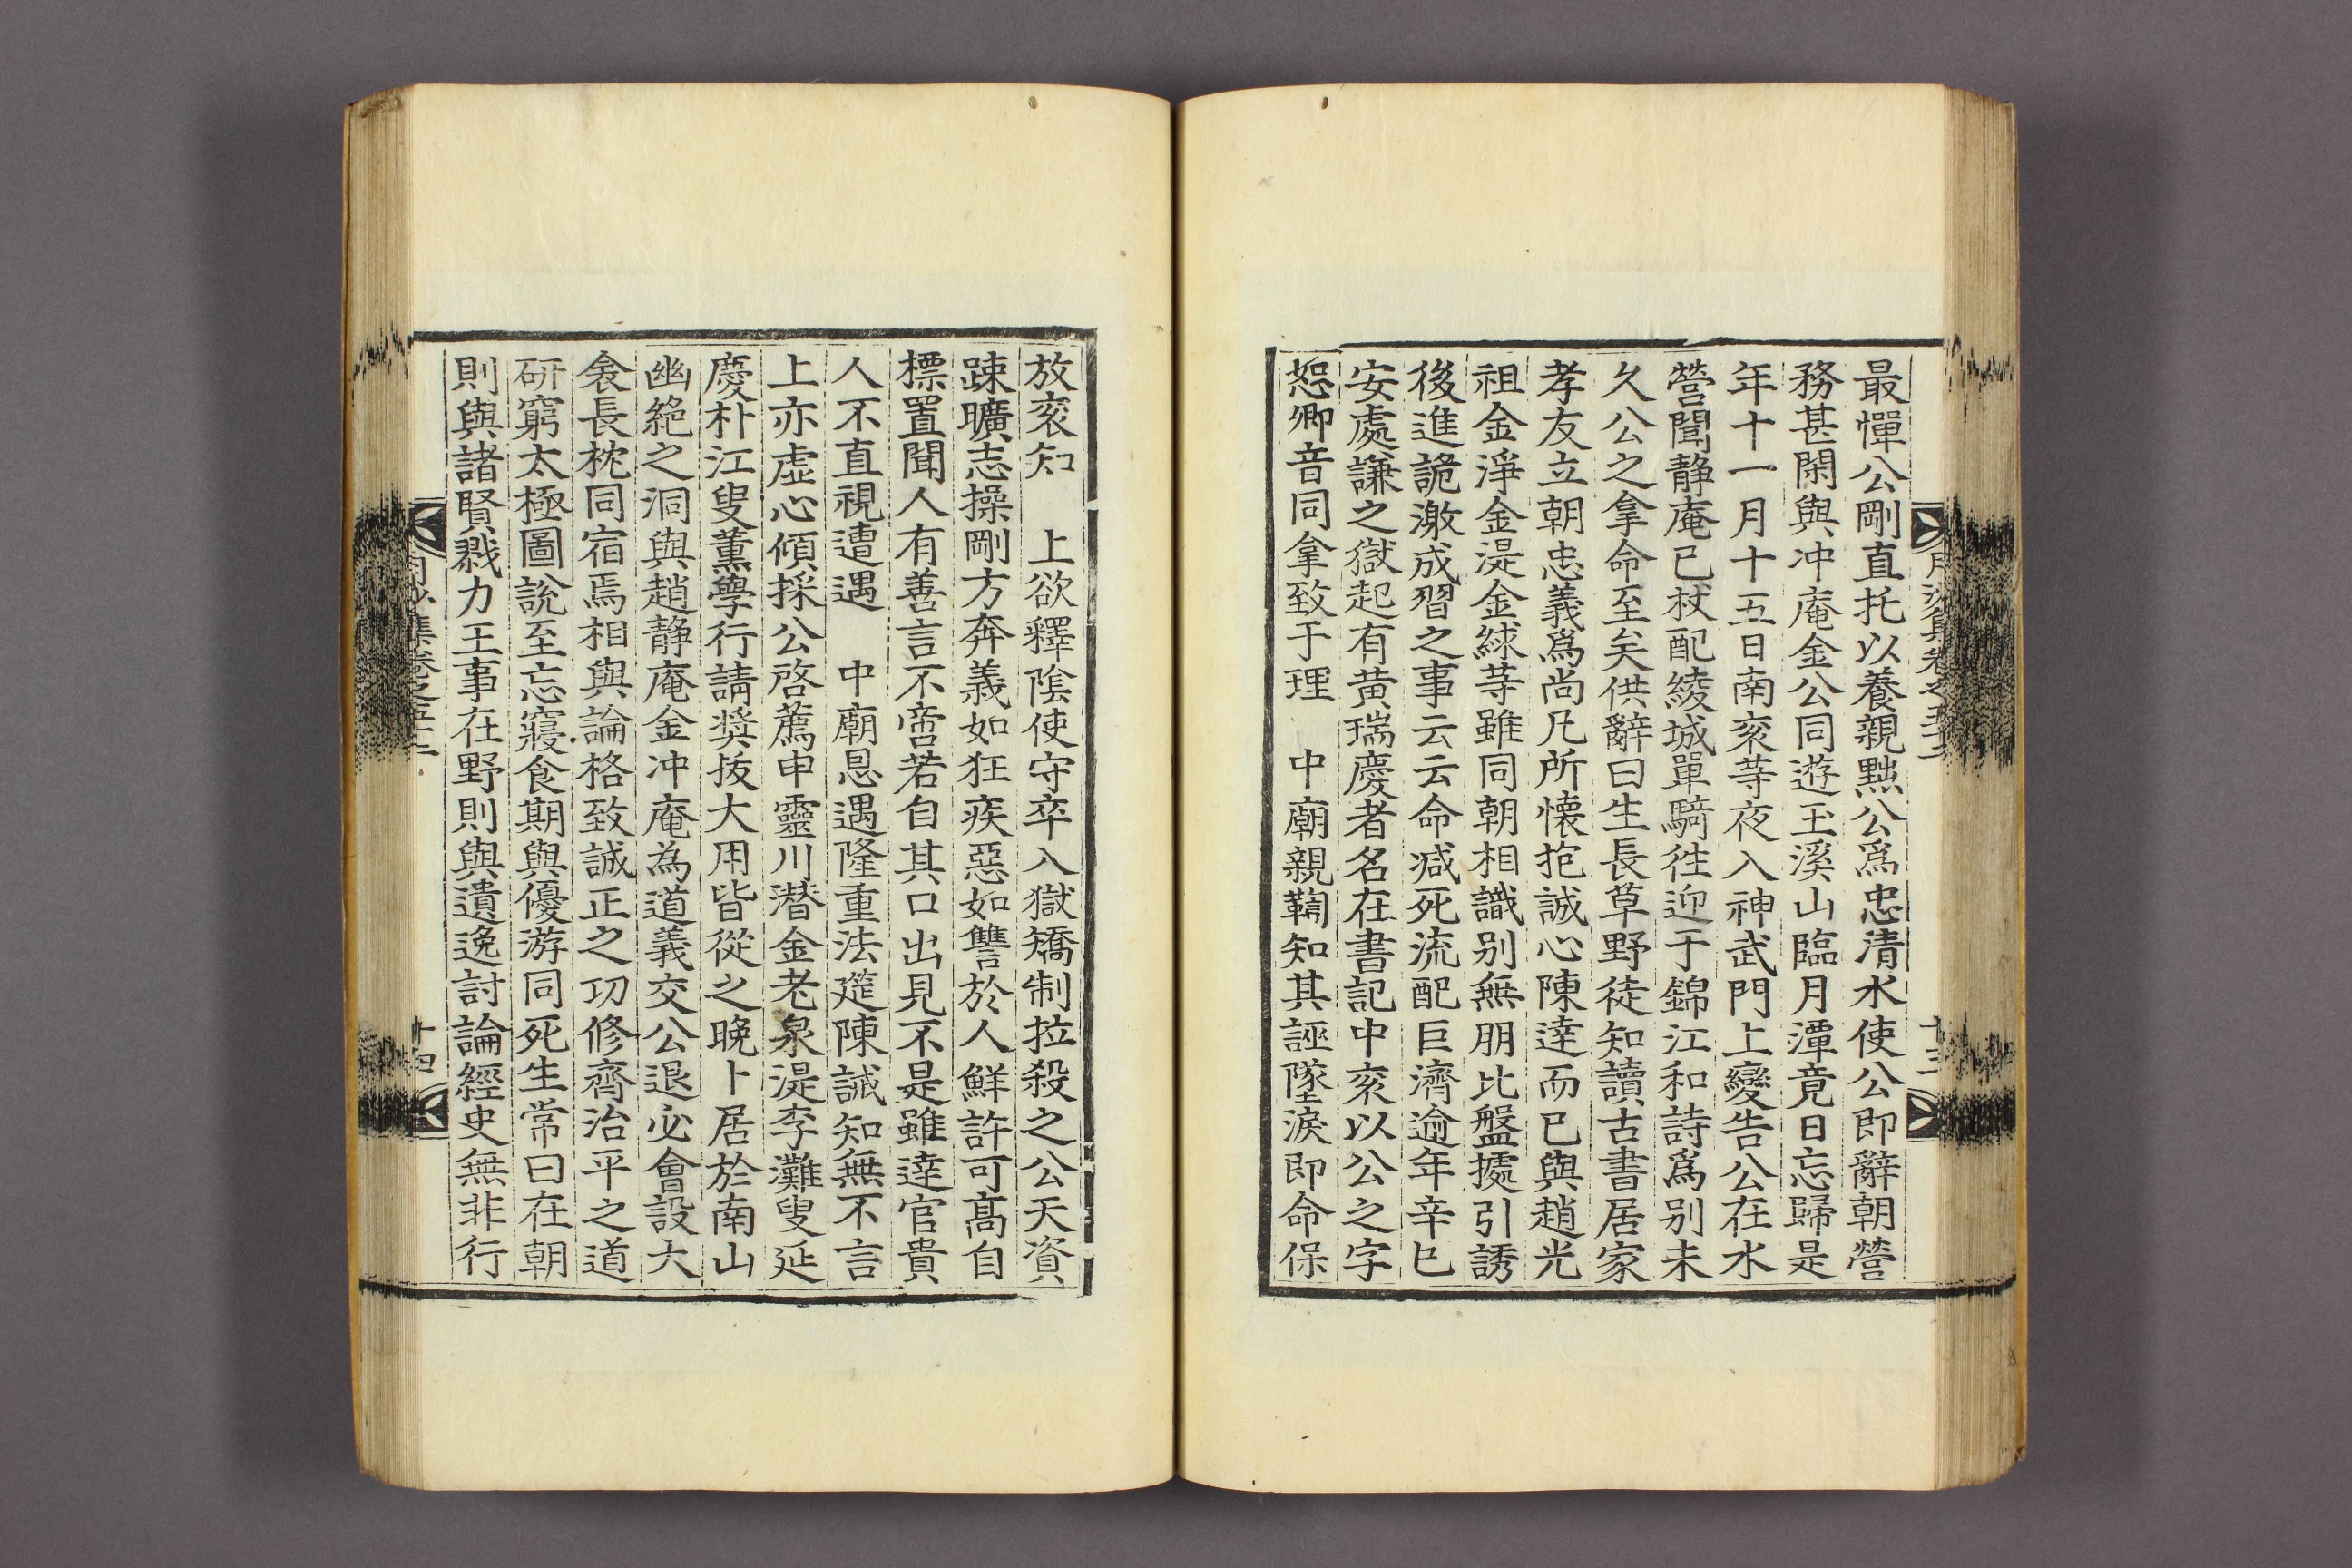 最憚公剛直托以養親黜公爲忠淸水使公即辭朝營
務甚閑與冲庵金公同遊玉溪山臨月潭竟日忘歸是
年十一月十五日南袞等夜入神武門上變告公在水
營聞静庵已杖配綾城單騎徃迎于錦江和詩爲别未
久公之拿命至矣供辭曰生長草野徒知讀古書居家
孝友立朝忠義爲尚凡所懷抱誠心陳達而已與趙光
祖金淨金湜金絿等雖同朝相識别無朋比盤據引誘
後進詭激成習之事云云命减死流配巨濟逾年辛巳
安處謙之獄起有黄瑞慶者名在書記中袞以公之字
恕卿音同拿致于理　中廟親鞫知其誣墜淚即命保
月沙集卷之五十二
十三
放袞知　上欲釋陰使守卒入獄矯制拉殺之公天資
踈曠志操剛方奔義如狂疾惡如讐於人鮮許可高自
標置聞人有善言不啻若自其口出見不是雖達官貴
人不直視遭遇　中廟恩遇隆重法筵陳誡知無不言
上亦虚心傾採公啓薦申靈川潜金老泉湜李灘叟延
慶朴江叟薰學行請奬拔大用皆從之晩卜居於南山
幽絶之洞與趙静庵金冲庵為道義交公退必會設大
衾長枕同宿焉相與論格致誠正之功修齊治平之道
硏窮太極圖說至忘寢食期與優游同死生常曰在朝
則與諸賢戮力王事在野則與遺逸討論經史無非行
月沙集卷之五十二
十四